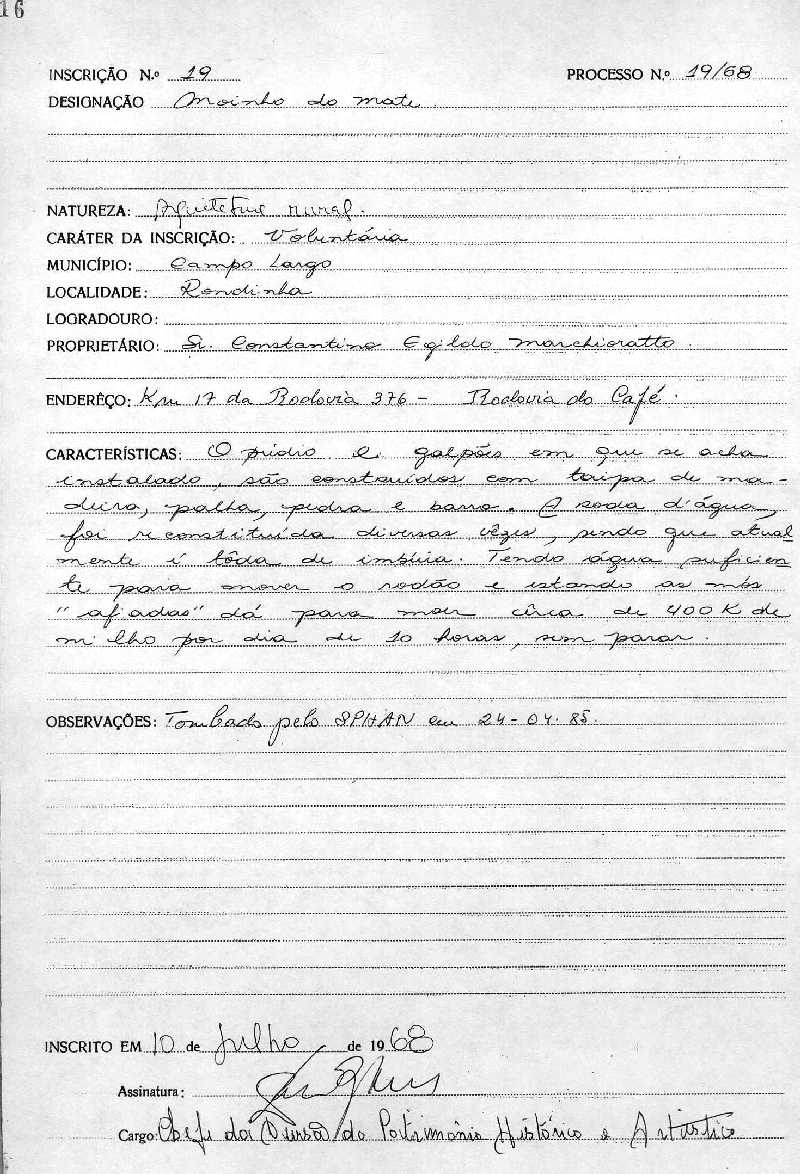 16
INSCRIÇÃO N.º 19 PROCESSO N.º 19/68
DESIGNAÇÃO Moinho do mate
NATUREZA: Arquitetura rural.
CARÁTER DA INSCRIÇÃO: Voluntária
MUNICÍPIO: Campo Largo
LOCALIDADE: Rondinha
LOGRADOURO:
PROPRIETÁRIO: Sr. Constantino Egildo Marchioratto.
ENDERÊÇO: Km 17 da Rodovia 376 - Rodovia do Café.
CARACTERÍSTICAS: O prédio e galpões em que se acha
instalado, são construídos com taipa de ma-
deira, palha, pedra e barro. A roda d'água,
foi reconstituída diversas vêzes, sendo que atual
mente é tôda de imbúia. Tendo água suficien
te para mover o rodão e estando as mós
"afiadas" dá para moer cêrca de 400 K de
milho por dia de 10 horas, sem parar.
OBSERVAÇÕES: Tombado pelo SPHAN em 24-04-85.
INSCRITO EM 10 de julho de 1968
Assinatura:
Cargo: Chefe da Divisão do Patrimônio Histórico e Artístico